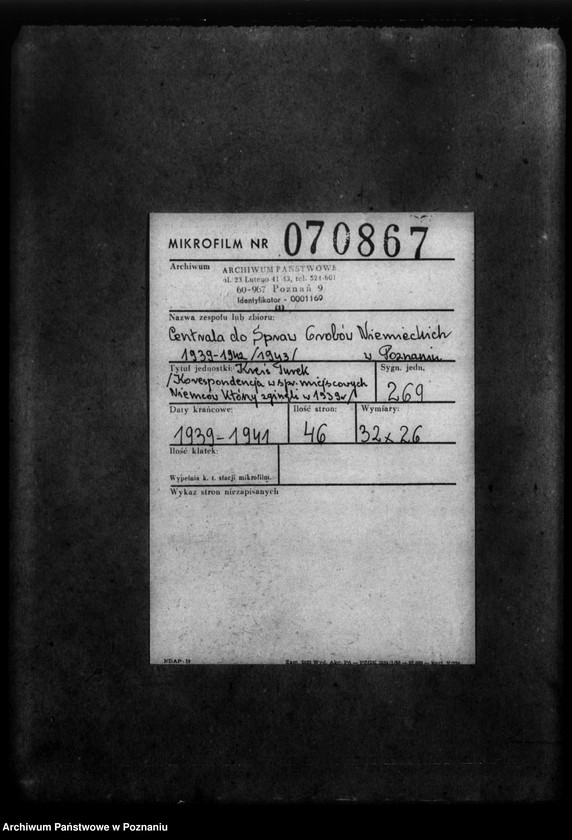 MIKROFILM NR 070867
Archiwum
ARCHIWUM PAŃSTWOWE
ul. 23 Lutego 41/43, tel. 524-601
60-967 Poznań 9
Identyfikator - 0001160
Nazwa zespołu lub zbioru:
Centrala do Spraw Grobów Niemieckich
1939-1942 /1943/ w Poznaniu
Tytuł jednostki: Kreis Turek
/Korespondencja w spr. miejscowych
Niemców którzy zginęli w 1939r/
Sygn. jedn.
269
Daty krańcowe:
1939-1941
Ilość stron:
46
Wymiary:
32x26
Ilość klatek:
Wypełnia k. t. stacji mikrofilm.
Wykaz stron niezapisanych
NDAP-19
Archiwum Państwowe w Poznaniu